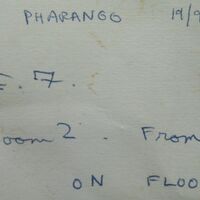 PHARANGO 19/9
E. 7.
oom 2. From
ON FLOO